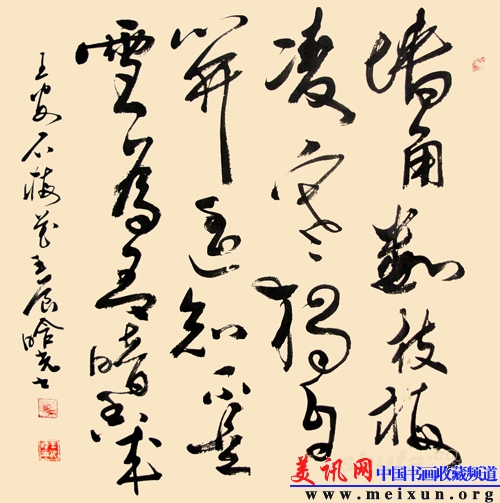 墙角数枝梅
凌寒独自
開遥知不是
雪為有暗香来
王安石梅花壬辰
美讯网 中国书画收藏频道
www.meixun.org